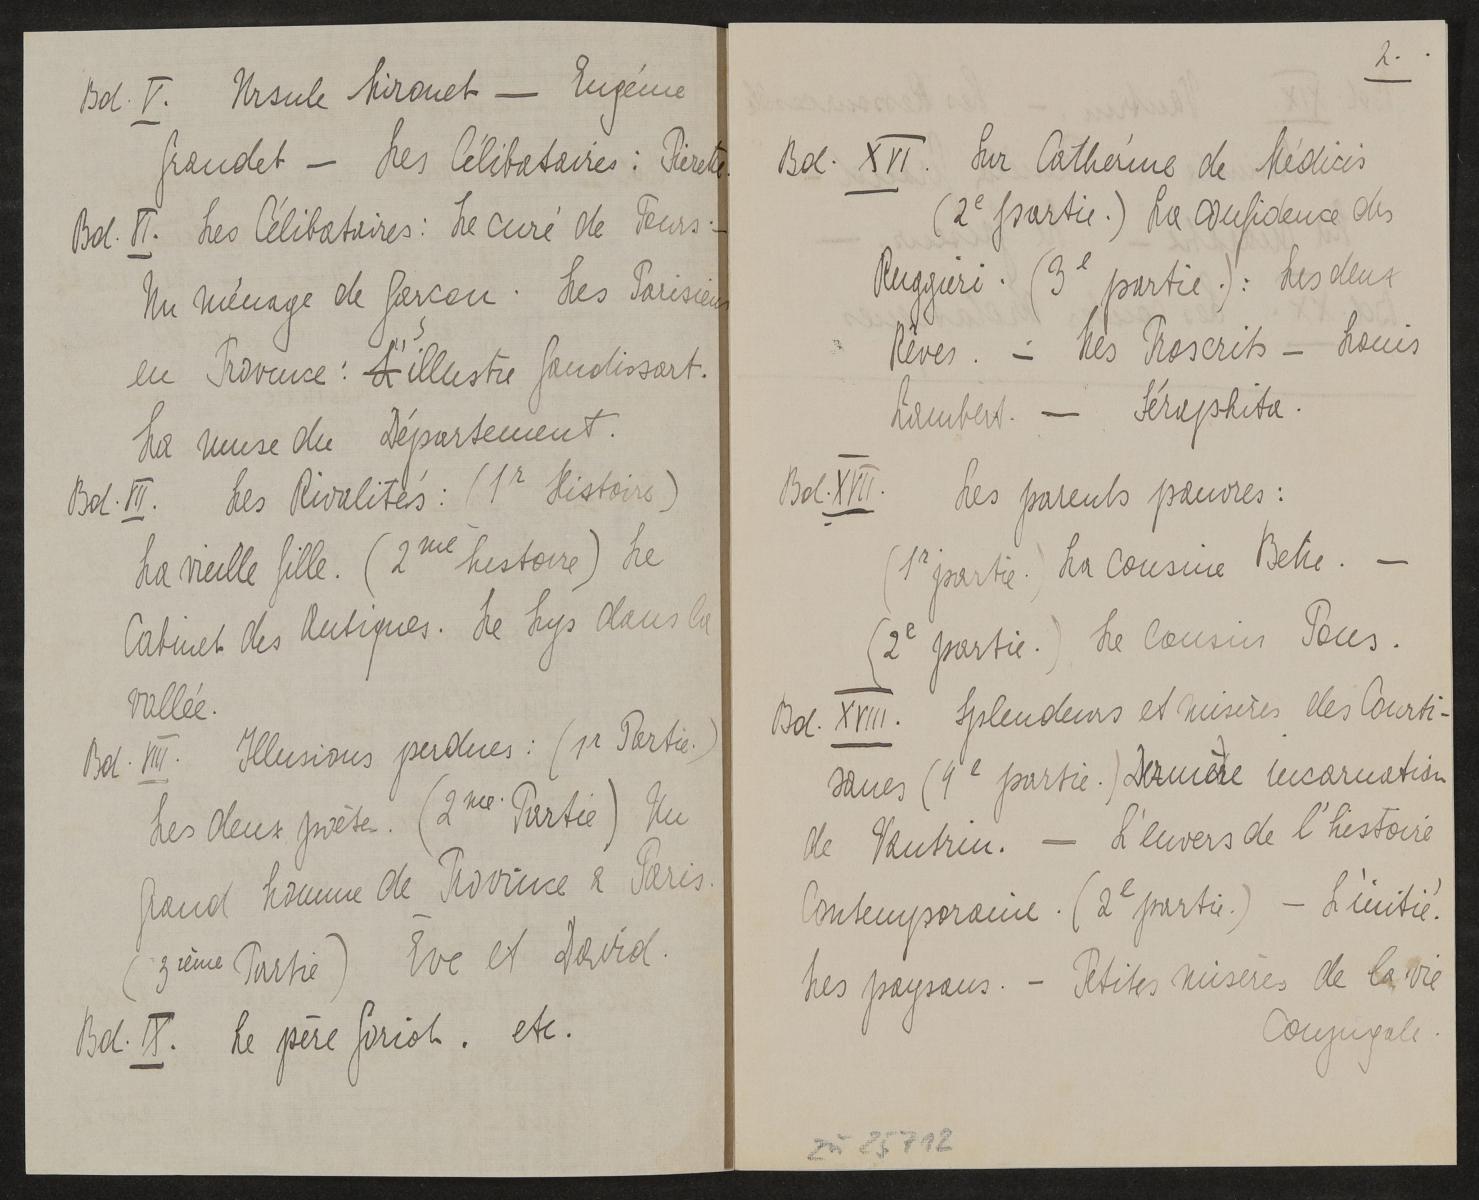 Bd. V. Ursule Mirouet — Eugénie
Grandet — Les Célibataires: Pierette.
Bd. VI. Les Célibataires: Le curé de Tours. —
Un ménage de Garcon. Les Parisiens
en Province: L'illustre Gaudissart.
La muse du Département.
Bd. VII. Les Rivalités: (1r Histoire)
La vieille fille. (2me histoire) Le
Cabinet des Antiques. Le Lys dans la
vallée.
Bd. VIII. Illusions perdues: (1r Partie.)
Les deux poètes. (2me Partie) Un
grand homme de Province a Paris.
(3ième Partie) Eve et David.
Bd. IX. Le père Goriot. etc.
2.
Bd. XVI. Sur Cathérine de Médicis
(2e partie.) La confidence des
Ruggieri. (3e partie.): Les deux
Rêves. — Les Proscrits — Louis
Lambert. — Séraphita.
Bd. XVII. Les parents pauvres:
(1r partie.) La cousine Bette. —
(2e partie.) Le cousin Pons.
Bd. XVIII. Splendeurs et misères des Courti-
sanes (4e partie.) Dernière incarnation
de Vautrin. — L'envers de l'histoire
Contemporaine. (2e partie.) — L'initié.
Les paysans. — Petites misères de la vie
Conjugale.
zu 25712